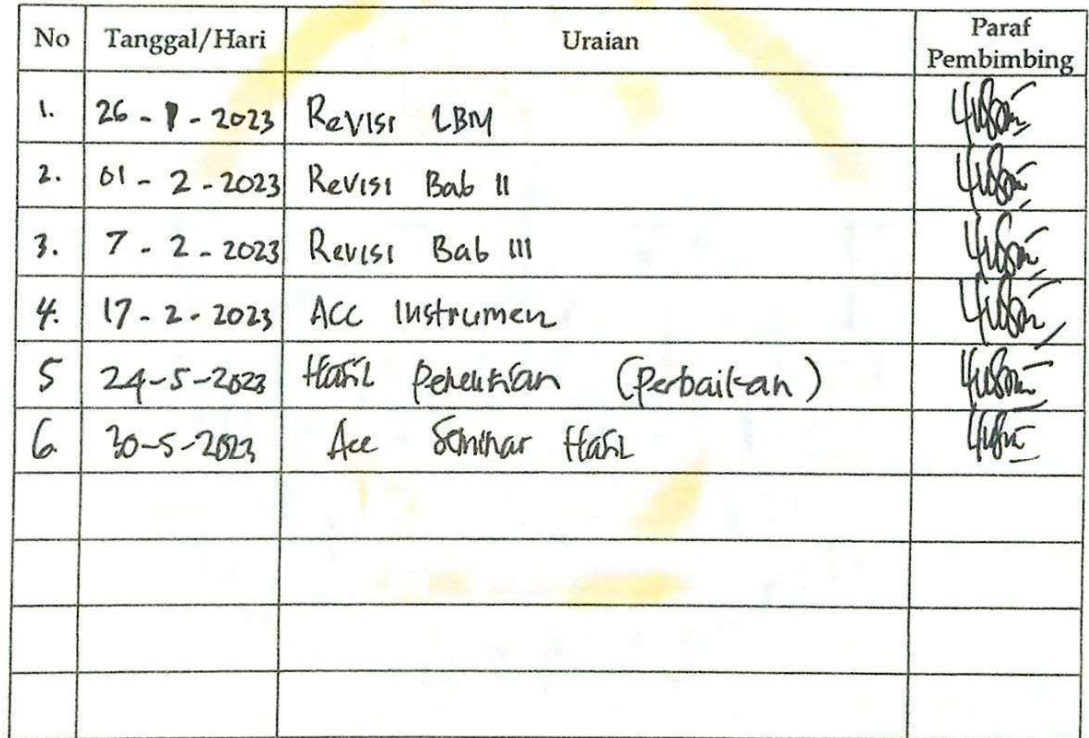 No Tanggal/Hari Uraian Paraf Pembimbing
1. 26 - 1 - 2023 Revisi LBM
2. 01 - 2 - 2023 Revisi Bab II
3. 7 - 2 - 2023 Revisi Bab III
4. 17 - 2 - 2023 ACC Instrumen
5 24-5-2023 Hasil Penelitian (Perbaikan)
6. 30-5-2023 Acc Seminar Hasil